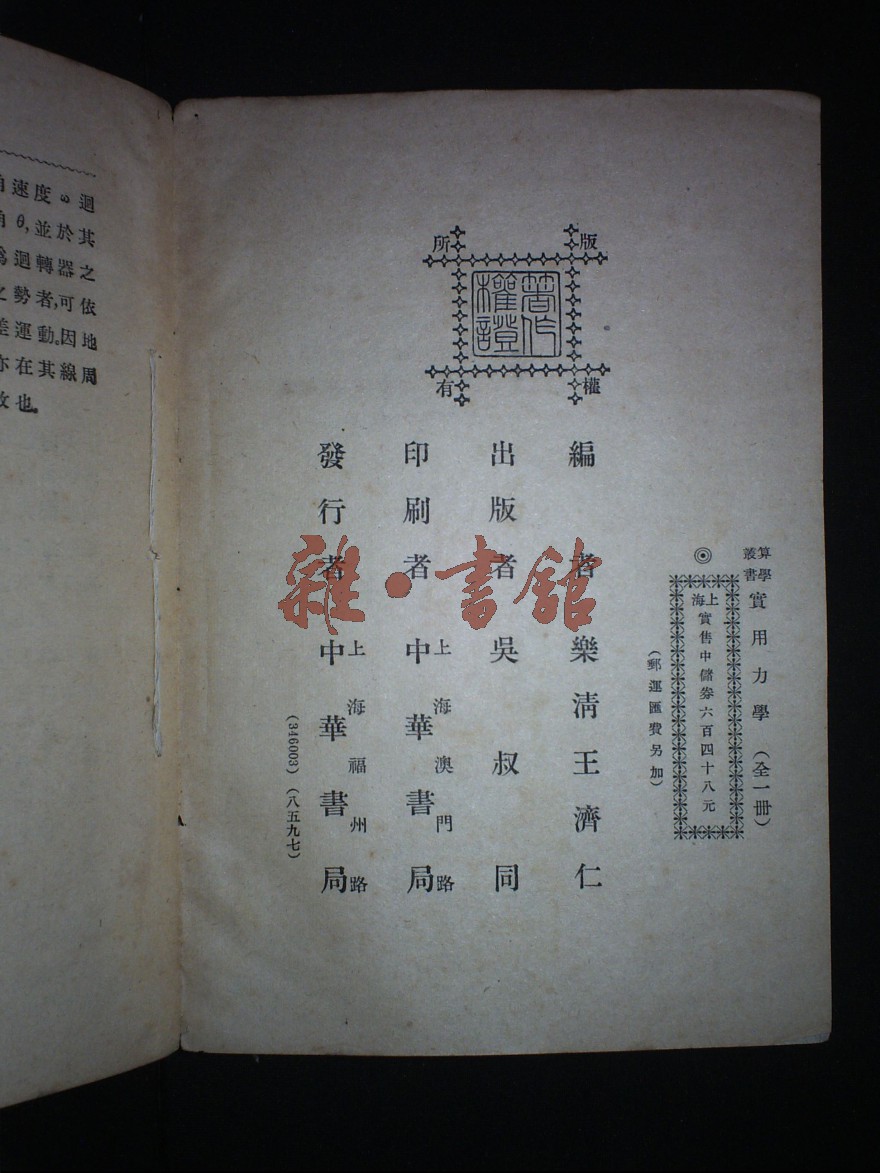 算學叢書 實用力學（全一冊）
◎
上海實售中儲券六百四十八元
（郵運匯費另加）
版權所有
著作權證
編者 樂清王濟仁
出版者 吳叔同
印刷者 上海澳門路 中華書局
發行者 上海福州路 中華書局
(346003)（八五九七）
雜·書館
速度ω迴
θ,並於其
迴轉器之
勢者,可依
運動。因地
亦在其線周
故也。